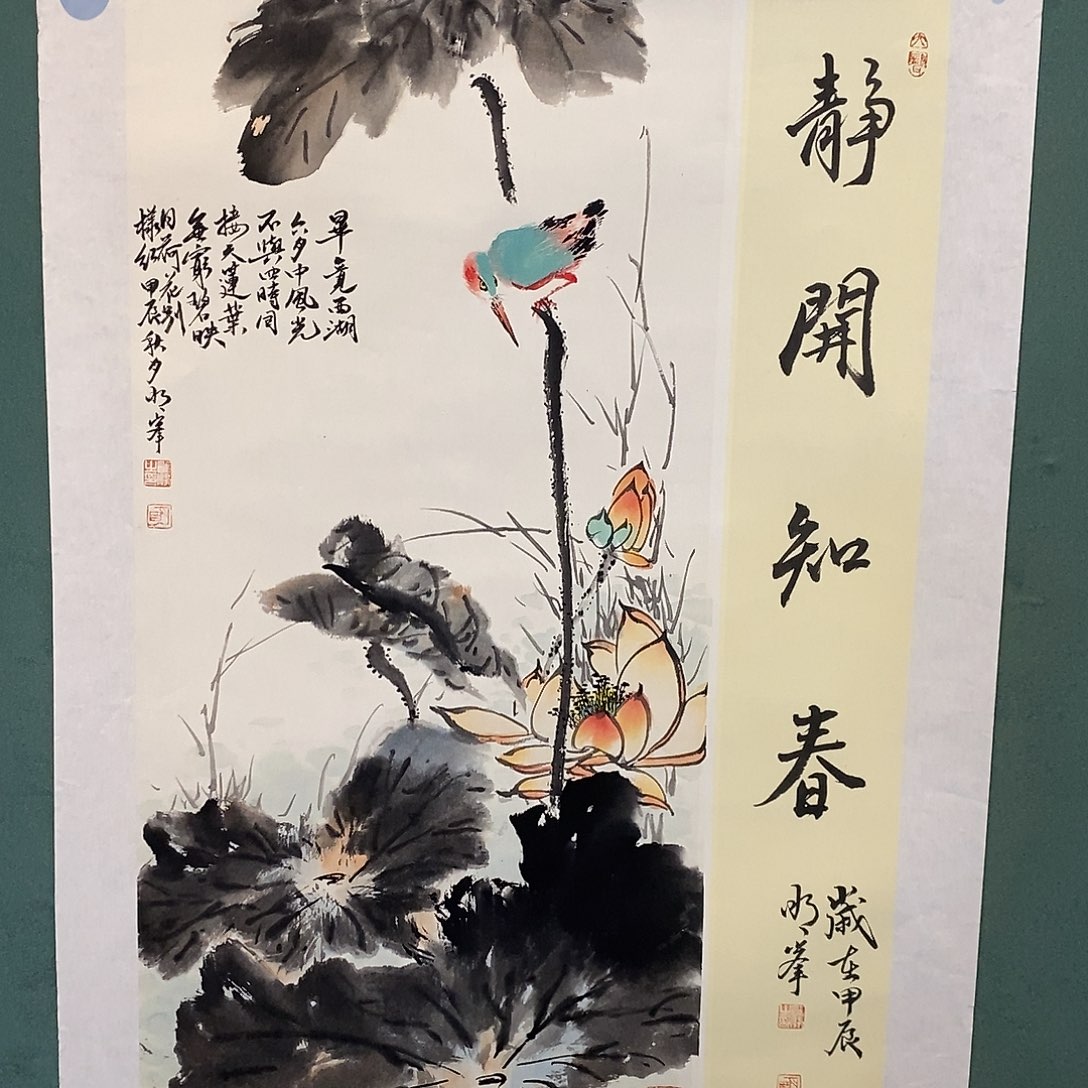 靜開知春
歲在甲辰
明峯
畢竟西湖
六月中風光
不與四時同
接天蓮葉
無窮碧映
日荷花別
樣紅甲辰秋月明峯